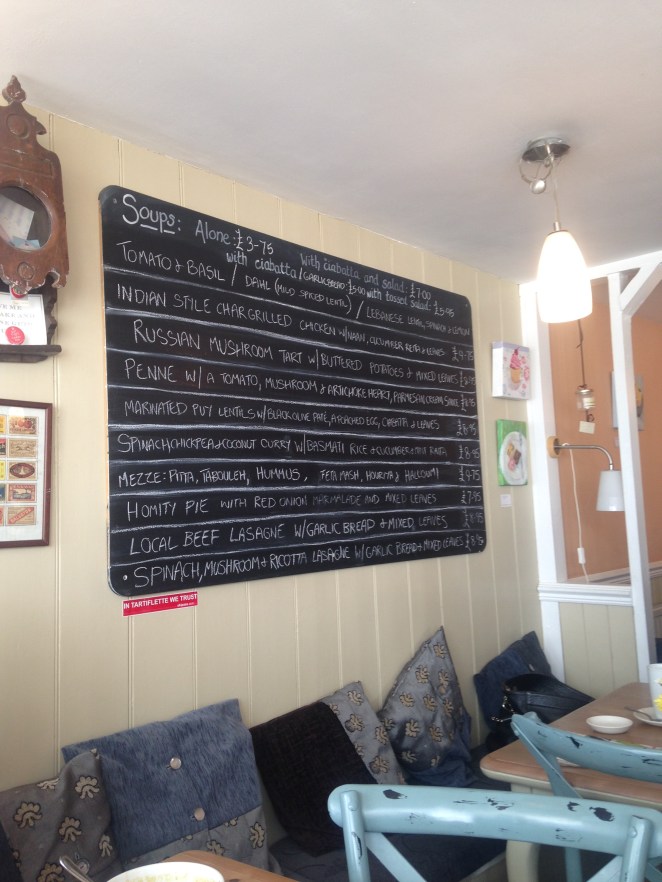 Soups: Alone: £3-75 With ciabatta and salad: £7.00
with ciabatta/GARLIC BREAD £5.00 with tossed salad: £5.95
TOMATO & BASIL / DAHL (MILD SPICED LENTIL) / LEBANESE LENTIL, SPINACH & LEMON
INDIAN STYLE CHARGRILLED CHICKEN W/NAAN, CUCUMBER RAITA & LEAVES £9-75
RUSSIAN MUSHROOM TART W/ BUTTERED POTATOES & MIXED LEAVES
PENNE W/ A TOMATO, MUSHROOM & ARTICHOKE HEART, PARMESAN CREAM SAUCE
MARINATED PUY LENTILS W/ BLACK OLIVE PATÉ, A POACHED EGG, CIABATTA & LEAVES £8.95
SPINACH, CHICKPEA & COCONUT CURRY W/ BASMATI RICE & CUCUMBER & MINT RAITA £8.95
MEZZE: PITTA, TABOULEH, HUMMUS, FETA MASH, & HALLOUMI £9-75
HOMITY PIE WITH RED ONION MARMALADE AND MIXED LEAVES £7.95
LOCAL BEEF LASAGNE W/GARLIC BREAD & MIXED LEAVES £8.95
SPINACH, MUSHROOM & RICOTTA LASAGNE W/ GARLIC BREAD & MIXED LEAVES
IN TARTIFLETTE WE TRUST